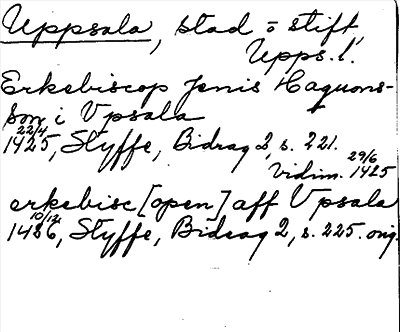 Uppsala, stad o stift,
Upps. l.
Erkebiscop Jenis Haquons-
son i Vpsala
22/4 1425, Styffe, Bidrag 2, s. 221.
Vidim. 29/6 1425
erkebisc [open] aff Vpsala
10/12 1426, Styffe, Bidrag 2, s. 225. orig.